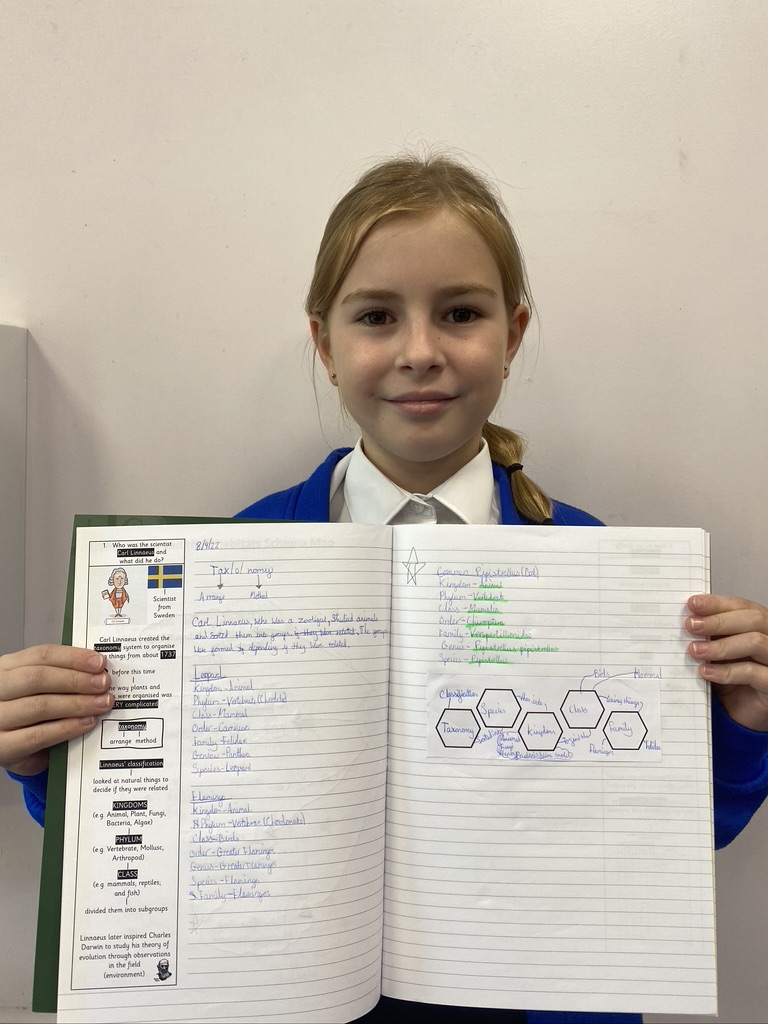 1. Who was the scientist
Carl Linnaeus and
what did he do?
Scientist
from
Sweden
Carl Linnaeus created the
taxonomy system to organise
things from about 1737
before this time
way plants and
were organised was
VERY complicated
taxonomy
arrange method
Linnaeus' classification
looked at natural things to
decide if they were related
KINGDOMS
(e.g Animal, Plant, Fungi,
Bacteria, Algae)
PHYLUM
(e.g. Vertebrate, Mollusc,
Arthropod)
CLASS
(e.g. mammals, reptiles,
and fish)
divided them into subgroups
Linnaeus later inspired Charles
Darwin to study his theory of
evolution through observations
in the field
(environment)
Tax/o/nomy
Arrange Method
Carl Linnaeus, who was a zoologist, studied animals
and sorted them into groups if they were related. The groups
were formed by depending if they were related.
Leopard
Kingdom-Animal
Phylum-Vertebrate (Chordata)
Class-Mammal
Family-Felidae
Species-Leopard
Flamingo
Kingdom-Animal
Class-Birds
Order-Greater Flamingo
Genus-Greater Flamingo
Species-Flamingo
Family-Flamingos
Kingdom-Animal
Phylum-Vertebrate
Order-Chiroptera
Genus-Pipistrellus pipistrellus
Birds Mammal
Classification
Species
Class
Living things
Taxonomy
Kingdom
Family
Felidae